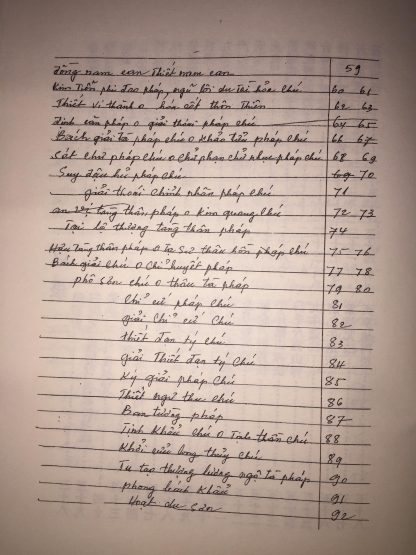 đồng nam can Thiết nam can 59
Kim Tiễn phi đao pháp, ngũ lôi du Tai hỏa chú 60 61
Thiết vi thành o hóa cốt thôn Thiên 62 63
Đinh căn pháp o giải thoái pháp chú 64 65
Bách giải tà pháp chú o Khảo tiểu pháp chú 66 67
Sát chư pháp chú o chư phạn chư như pháp chú 68 69
Suy đậu hũ pháp chú 70
giải thoái Chỉnh nhân pháp chú 71
an vị tàng thân pháp o Kim quang chú 72 73
Tại lộ thượng tàng thân pháp 74
tàng thân pháp o Tạ Sư thâu hồn pháp chú 75 76
Bách giải chú o Chỉ huyết pháp 77 78
phổ Sên chú o thâu tà pháp 79 80
Chỉ cứ pháp chú 81
giải chỉ cứ Chú 82
thiết đạn tý chú 83
giải Thiết đạn tý Chú 84
Ký giải pháp Chú 85
Thiết ngữ thu chú 86
Ban tường pháp 87
Tịnh Khẩu chú o Tịnh thân chú 88
Khởi cửu long thủy chú 89
Tu tạo thượng lương ngộ tà pháp 90
phong bách Khẩu 91
Hoạt du sản 92